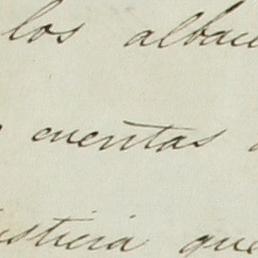 los albace
cuentas
usticia que